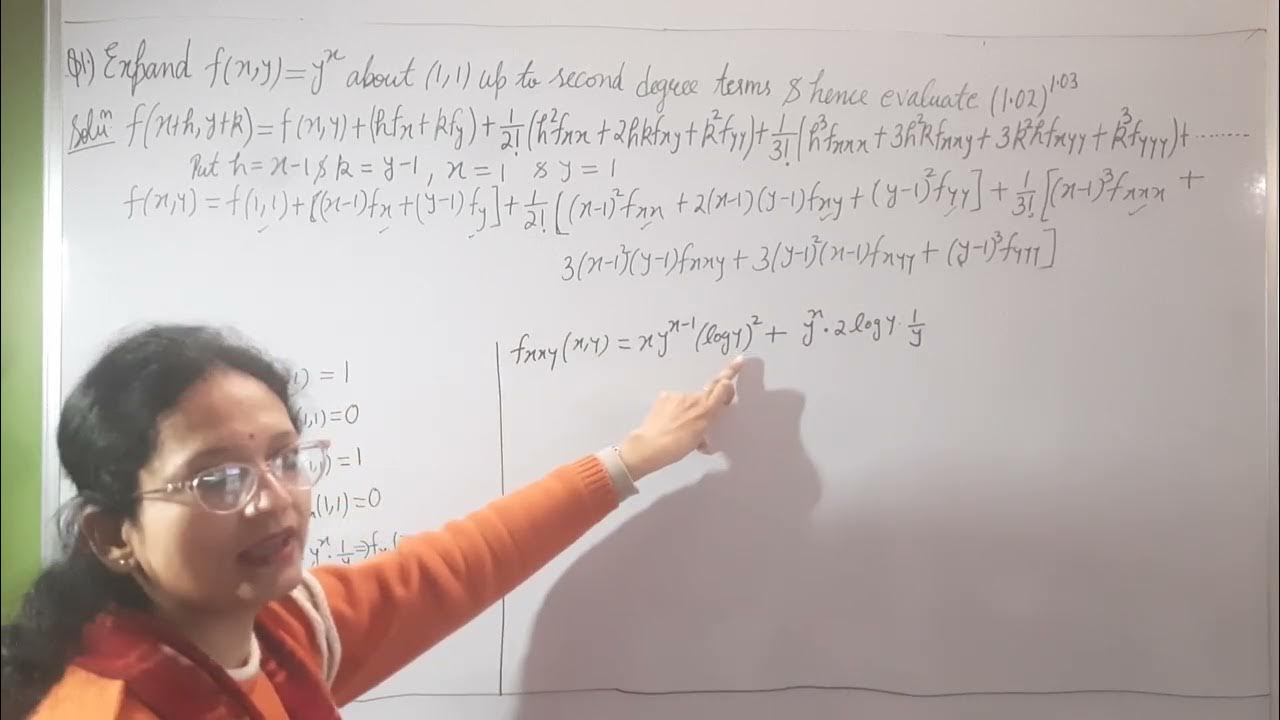 Q1.) Expand f(x,y) = yˣ about (1,1) up to second degree terms & hence evaluate (1.02)^1.03
Soluⁿ f(x+h, y+k) = f(x,y) + (hfx + kfy) + 1/2! (h²fxx + 2hkfxy + k²fyy) + 1/3! (h³fxxx + 3h²kfxxy + 3k²hfxyy + k³fyyy) + ........
Put h = x-1 & k = y-1, x = 1 & y = 1
f(x,y) = f(1,1) + [(x-1)fx + (y-1)fy] + 1/2! [(x-1)²fxx + 2(x-1)(y-1)fxy + (y-1)²fyy] + 1/3! [(x-1)³fxxx +
3(x-1)²(y-1)fxxy + 3(y-1)²(x-1)fxyy + (y-1)³fyyy]
fxxy(x,y) = xy^(x-1) (logy)² + yˣ · 2logy · 1/y
1) = 1
(1,1) = 0
1) = 1
(1,1) = 0
yˣ · 1/y ⇒